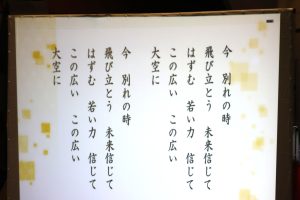 今　別れの時
飛び立とう　未来信じて
はずむ　若い力　信じて
この広い　この広い
大空に
今　別れの時
飛び立とう　未来信じて
はずむ　若い力　信じて
この広い　この広い
大空に